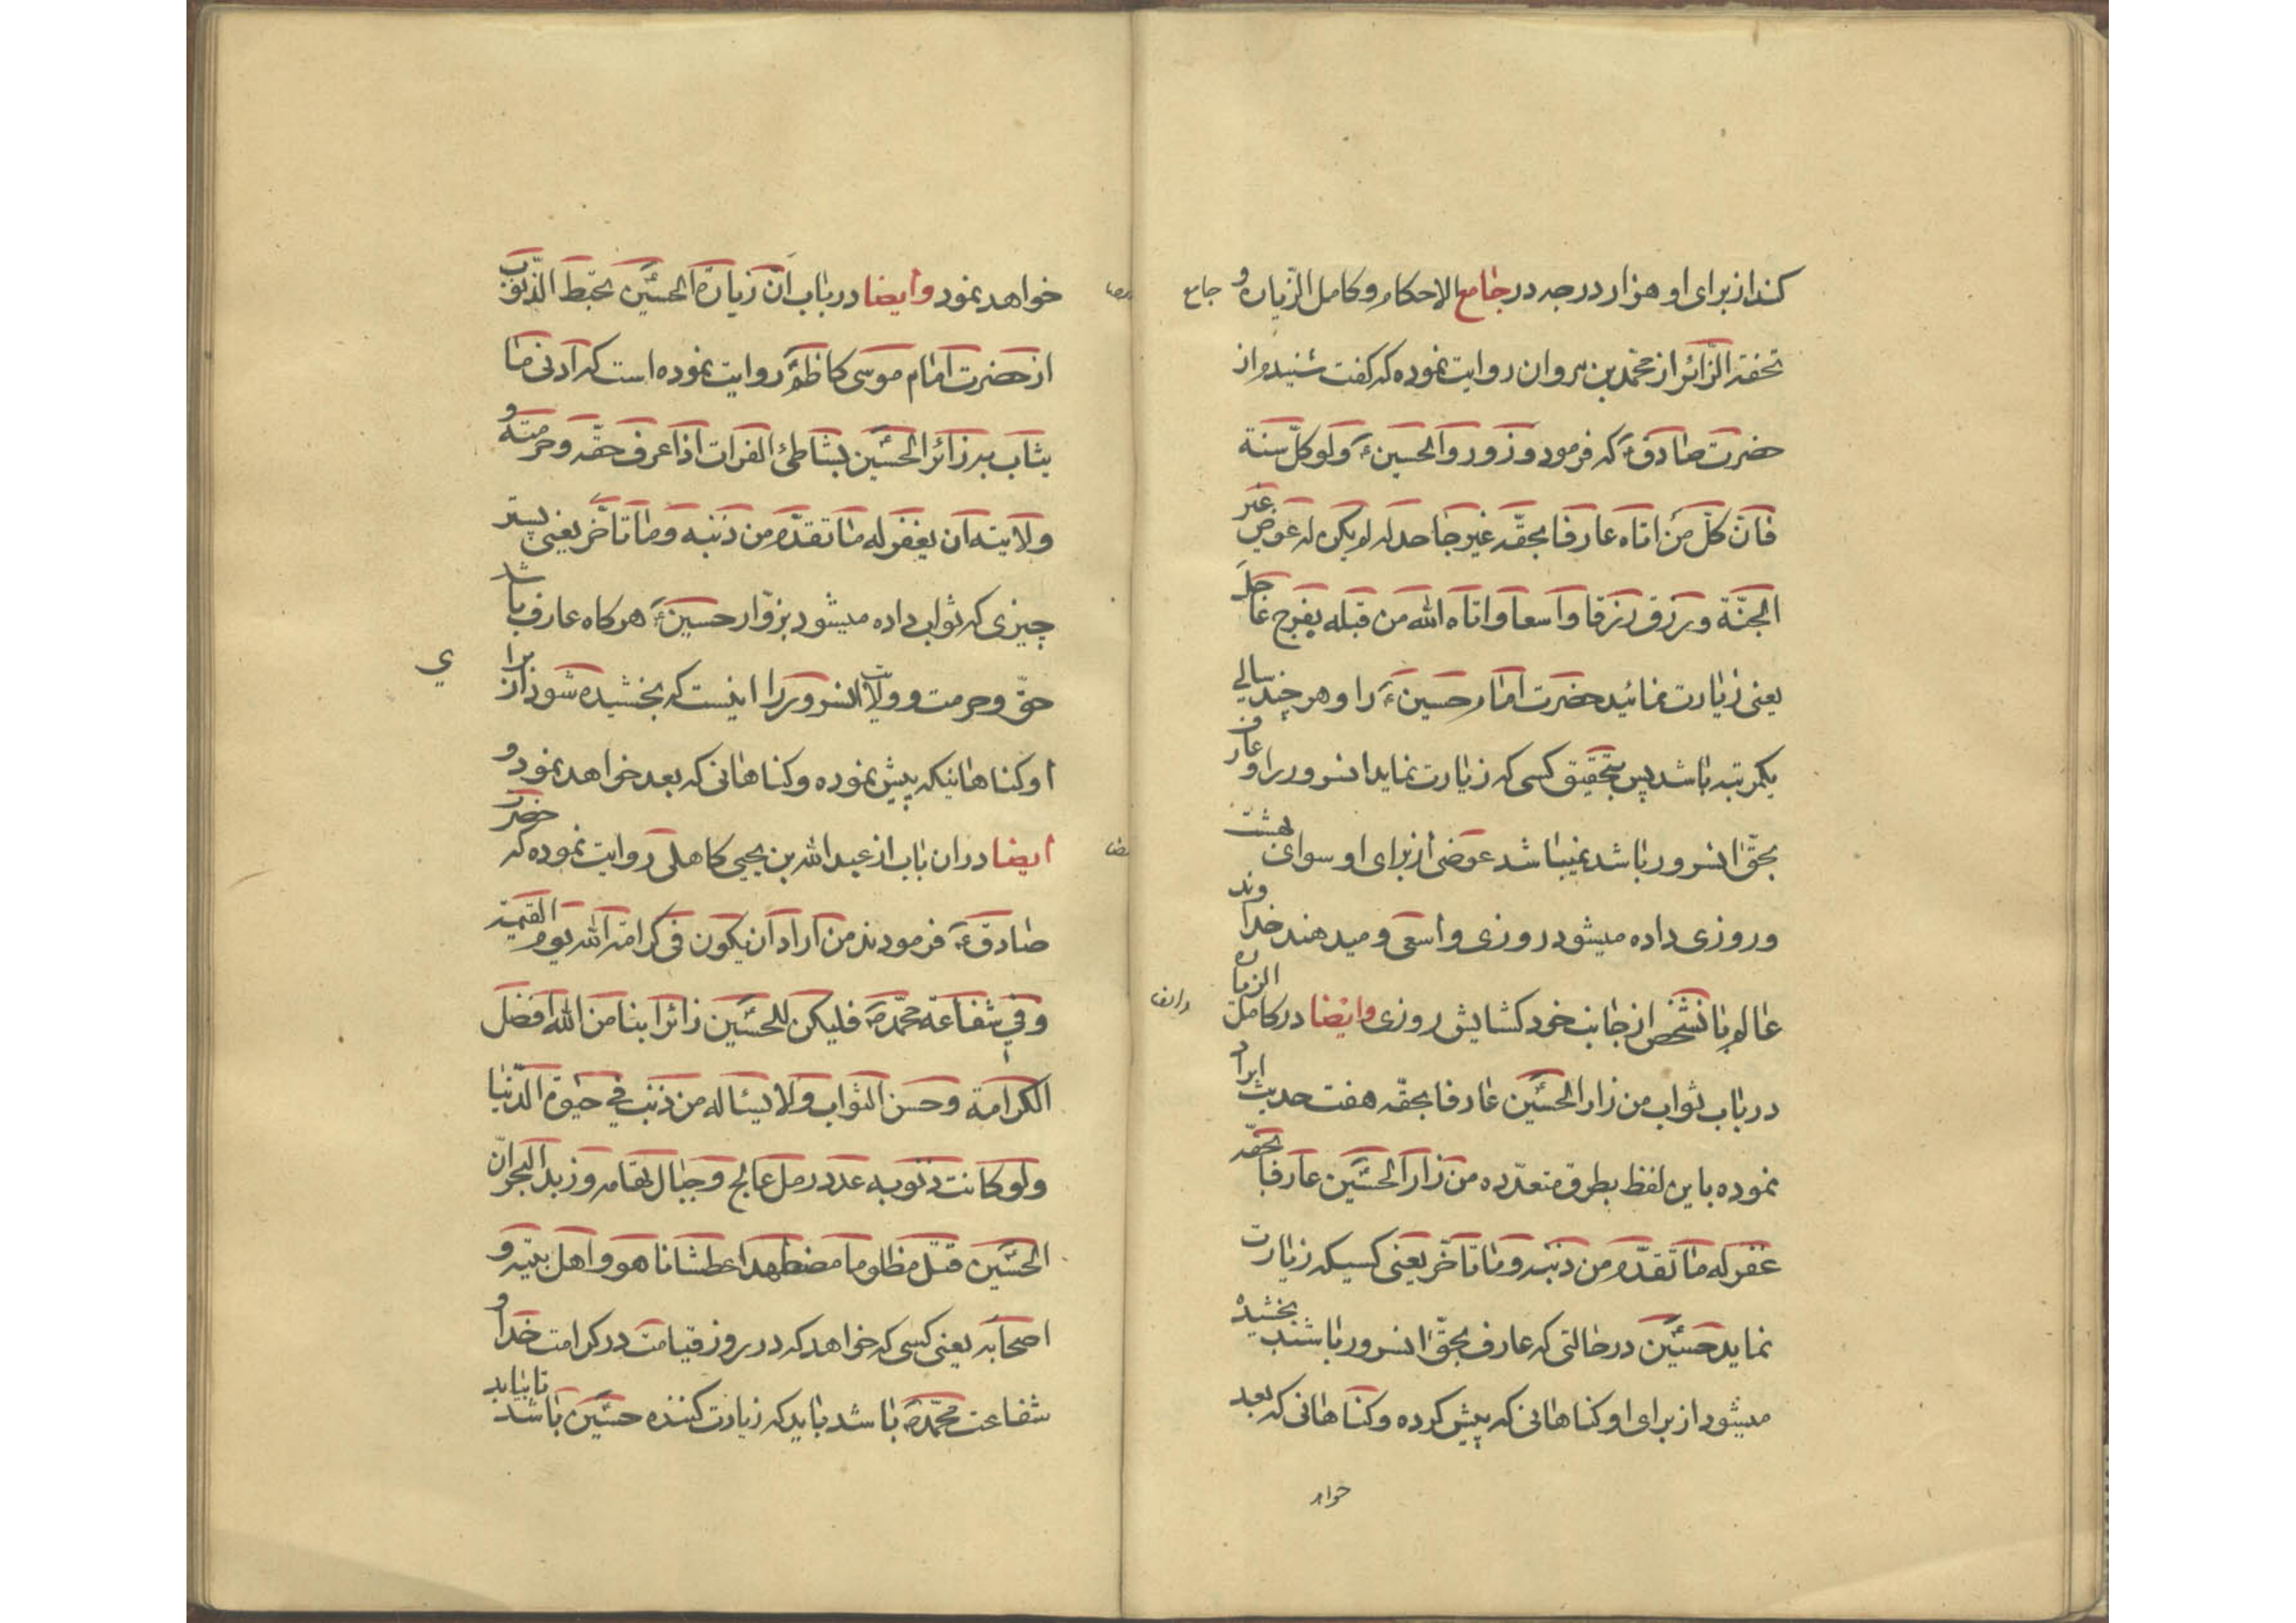 کند از برای او هزار درجه در جامع الاحکام و کامل الزیاره و
جامع
تحفة الزائر از محمد بن مروان روایت نموده که گفت شنیدم از
حضرت صادقؑ که فرمود وزوروا الحسینؑ ولو کل سنة
فان کل من اتاه عارفا بحقه غیر جاحد له لم یکن له عوض غیر
الجنة و یرزق رزقا واسعا و اتاه الله من قبله بفرج عاجل
یعنی زیارت نمائید حضرت امام حسینؑ را و هر چند سالی
یکمرتبه باشد پس بتحقیق کسی که زیارت نماید انسرور را و عارف
بحق انسرور باشد نمیباشد عوضی از برای او سوای بهشت
و روزی داده میشود روزی واسعی و میدهند خداوند
عالم بانشخص از جانب خود کشایش روزی و ایضا در کامل الزیاره
وایضا
در باب ثواب من زار الحسین عارفا بحقه هفت حدیث ایراد
نموده باین لفظ بطرق متعدده من زار الحسین عارفا بحقه
غفر له ما تقدم من ذنبه و ما تاخر یعنی کسیکه زیارت
نماید حسین در حالتی که عارف بحق انسرور باشد بخشیده
میشود از برای او کناهانی که پیش کرده و کناهانی که بعد
خواهد
خواهد نمود و ایضا در باب ان زیارة الحسین تحبط الذنوب
از حضرت امام موسی کاظمؑ روایت نموده است که ادنی ما
یثاب به زائر الحسین بشاطئ الفرات اذا عرف حقه و حرمته و
ولایته ان یغفر له ما تقدم من ذنبه و ما تاخر یعنی پستر
چیزی که ثواب داده میشود بزوار حسینؑ هر کاه عارف باشد
حق و حرمت و ولایت انسرور را اینست که بخشیده شود از برا
ی
او کناهانیکه پیش نموده و کناهانی که بعد خواهد نمود و
ایضا در ان باب از عبد الله بن یحیی کاهلی روایت نموده که حضرت
صادقؑ فرمودند من اراد ان یکون فی کرامة الله یوم القیمة
و فی شفاعة محمدؐ فلیکن للحسین زائرا ینا من الله افضل
الکرامة و حسن الثواب و لا یسئاله من ذنب فی حیوة الدنیا
و لو کانت ذنوبه عدد رمل عالج و جبال تهامه و زبد البحر ان
الحسین قتل مظلوما مضطهدا عطشانا هو و اهل بیته و
اصحابه یعنی کسی که خواهد که در روز قیامت در کرامت خدا و
شفاعت محمدؐ باشد باید که زیارت کننده حسین باشد تا بیابد